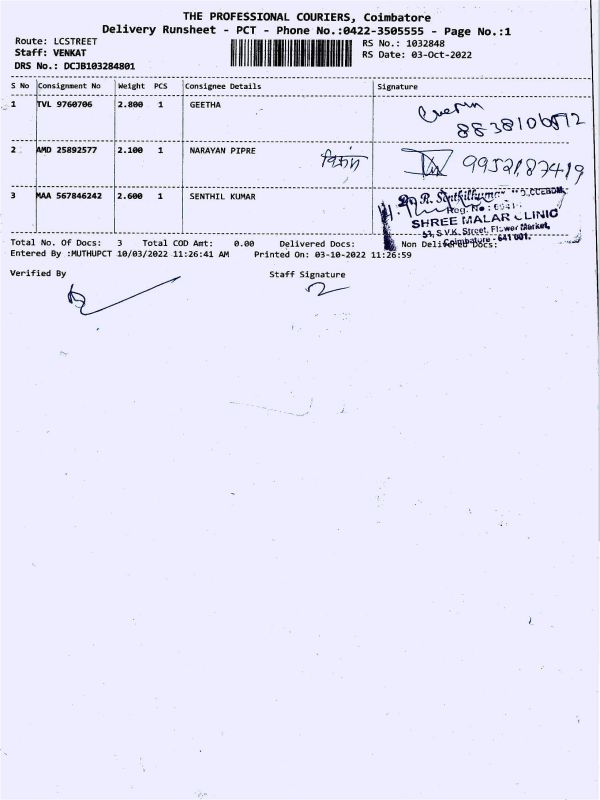 THE PROFESSIONAL COURIERS, Coimbatore
Delivery Runsheet - PCT - Phone No.:0422-3505555 - Page No.:1
Route: LCSTREET
RS No.: 1032848
Staff: VENKAT
RS Date: 03-Oct-2022
DRS No.: DCJB103284801
S No Consignment No Weight PCS Consignee Details Signature
1 TVL 9760706 2.800 1 GEETHA
2 AMD 25892577 2.100 1 NARAYAN PIPRE 9952187419
3 MAA 567846242 2.600 1 SENTHIL KUMAR
Dr. R. Senthilkumar
Reg. No :
SHREE MALAR CLINIC
53, S.V.K. Street, Flower Market,
Coimbatore - 641 001.
Total No. Of Docs: 3 Total COD Amt: 0.00 Delivered Docs: Non Delivered Docs:
Entered By :MUTHUPCT 10/03/2022 11:26:41 AM Printed On: 03-10-2022 11:26:59
Verified By Staff Signature